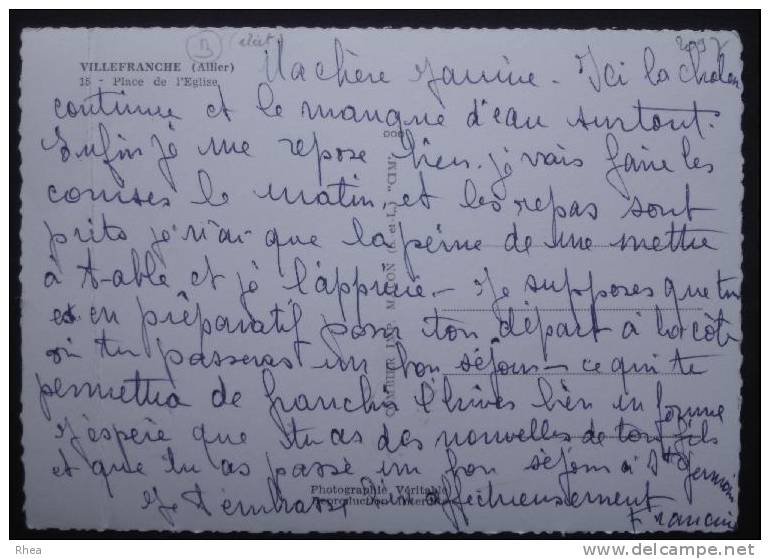 VILLEFRANCHE (Allier)
15 - Place de l'Eglise
Ma chère Janine. Ici la chaleur
continue et le manque d'eau surtout.
Enfin je me repose bien. je vais faire les
courses le matin, et les repas sont
prêts je n'ai que la peine de me mettre
à table et je l'apprécie - Je supposes que tu
es en préparatif pour ton départ à la côte
où tu passeras un bon séjour - ce qui te
permettra de franchir l'hiver bien en forme
J'espère que tu as des nouvelles de ton fils
et que tu as passé un bon séjour à St Germain
Je t'embrasse bien affectueusement
Francine
COMBIER IMP. MACON (S.-et-L.) "CIM"
Photographie Véritable
Reproduction Interdite
Rhea
www.delcampe.net